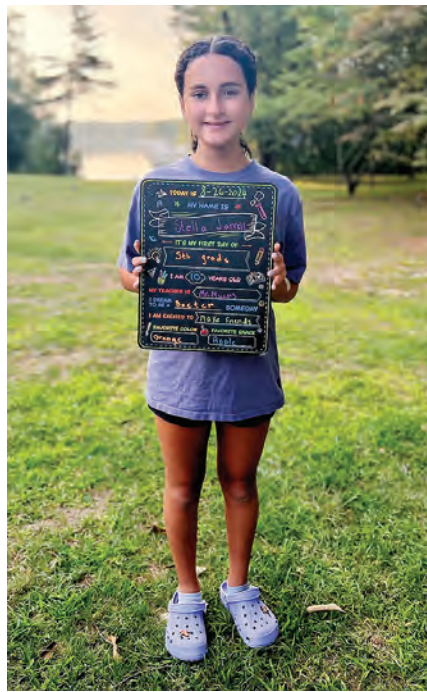 TODAY IS 8-26-2024
MY NAME IS
Stella
IT'S MY FIRST DAY OF
5th grade
I AM 10 YEARS OLD
MY TEACHER IS
I DREAM TO BE A Doctor SOMEDAY
I AM EXCITED TO Make Friends
FAVORITE COLOR FAVORITE SNACK
Orange Apple